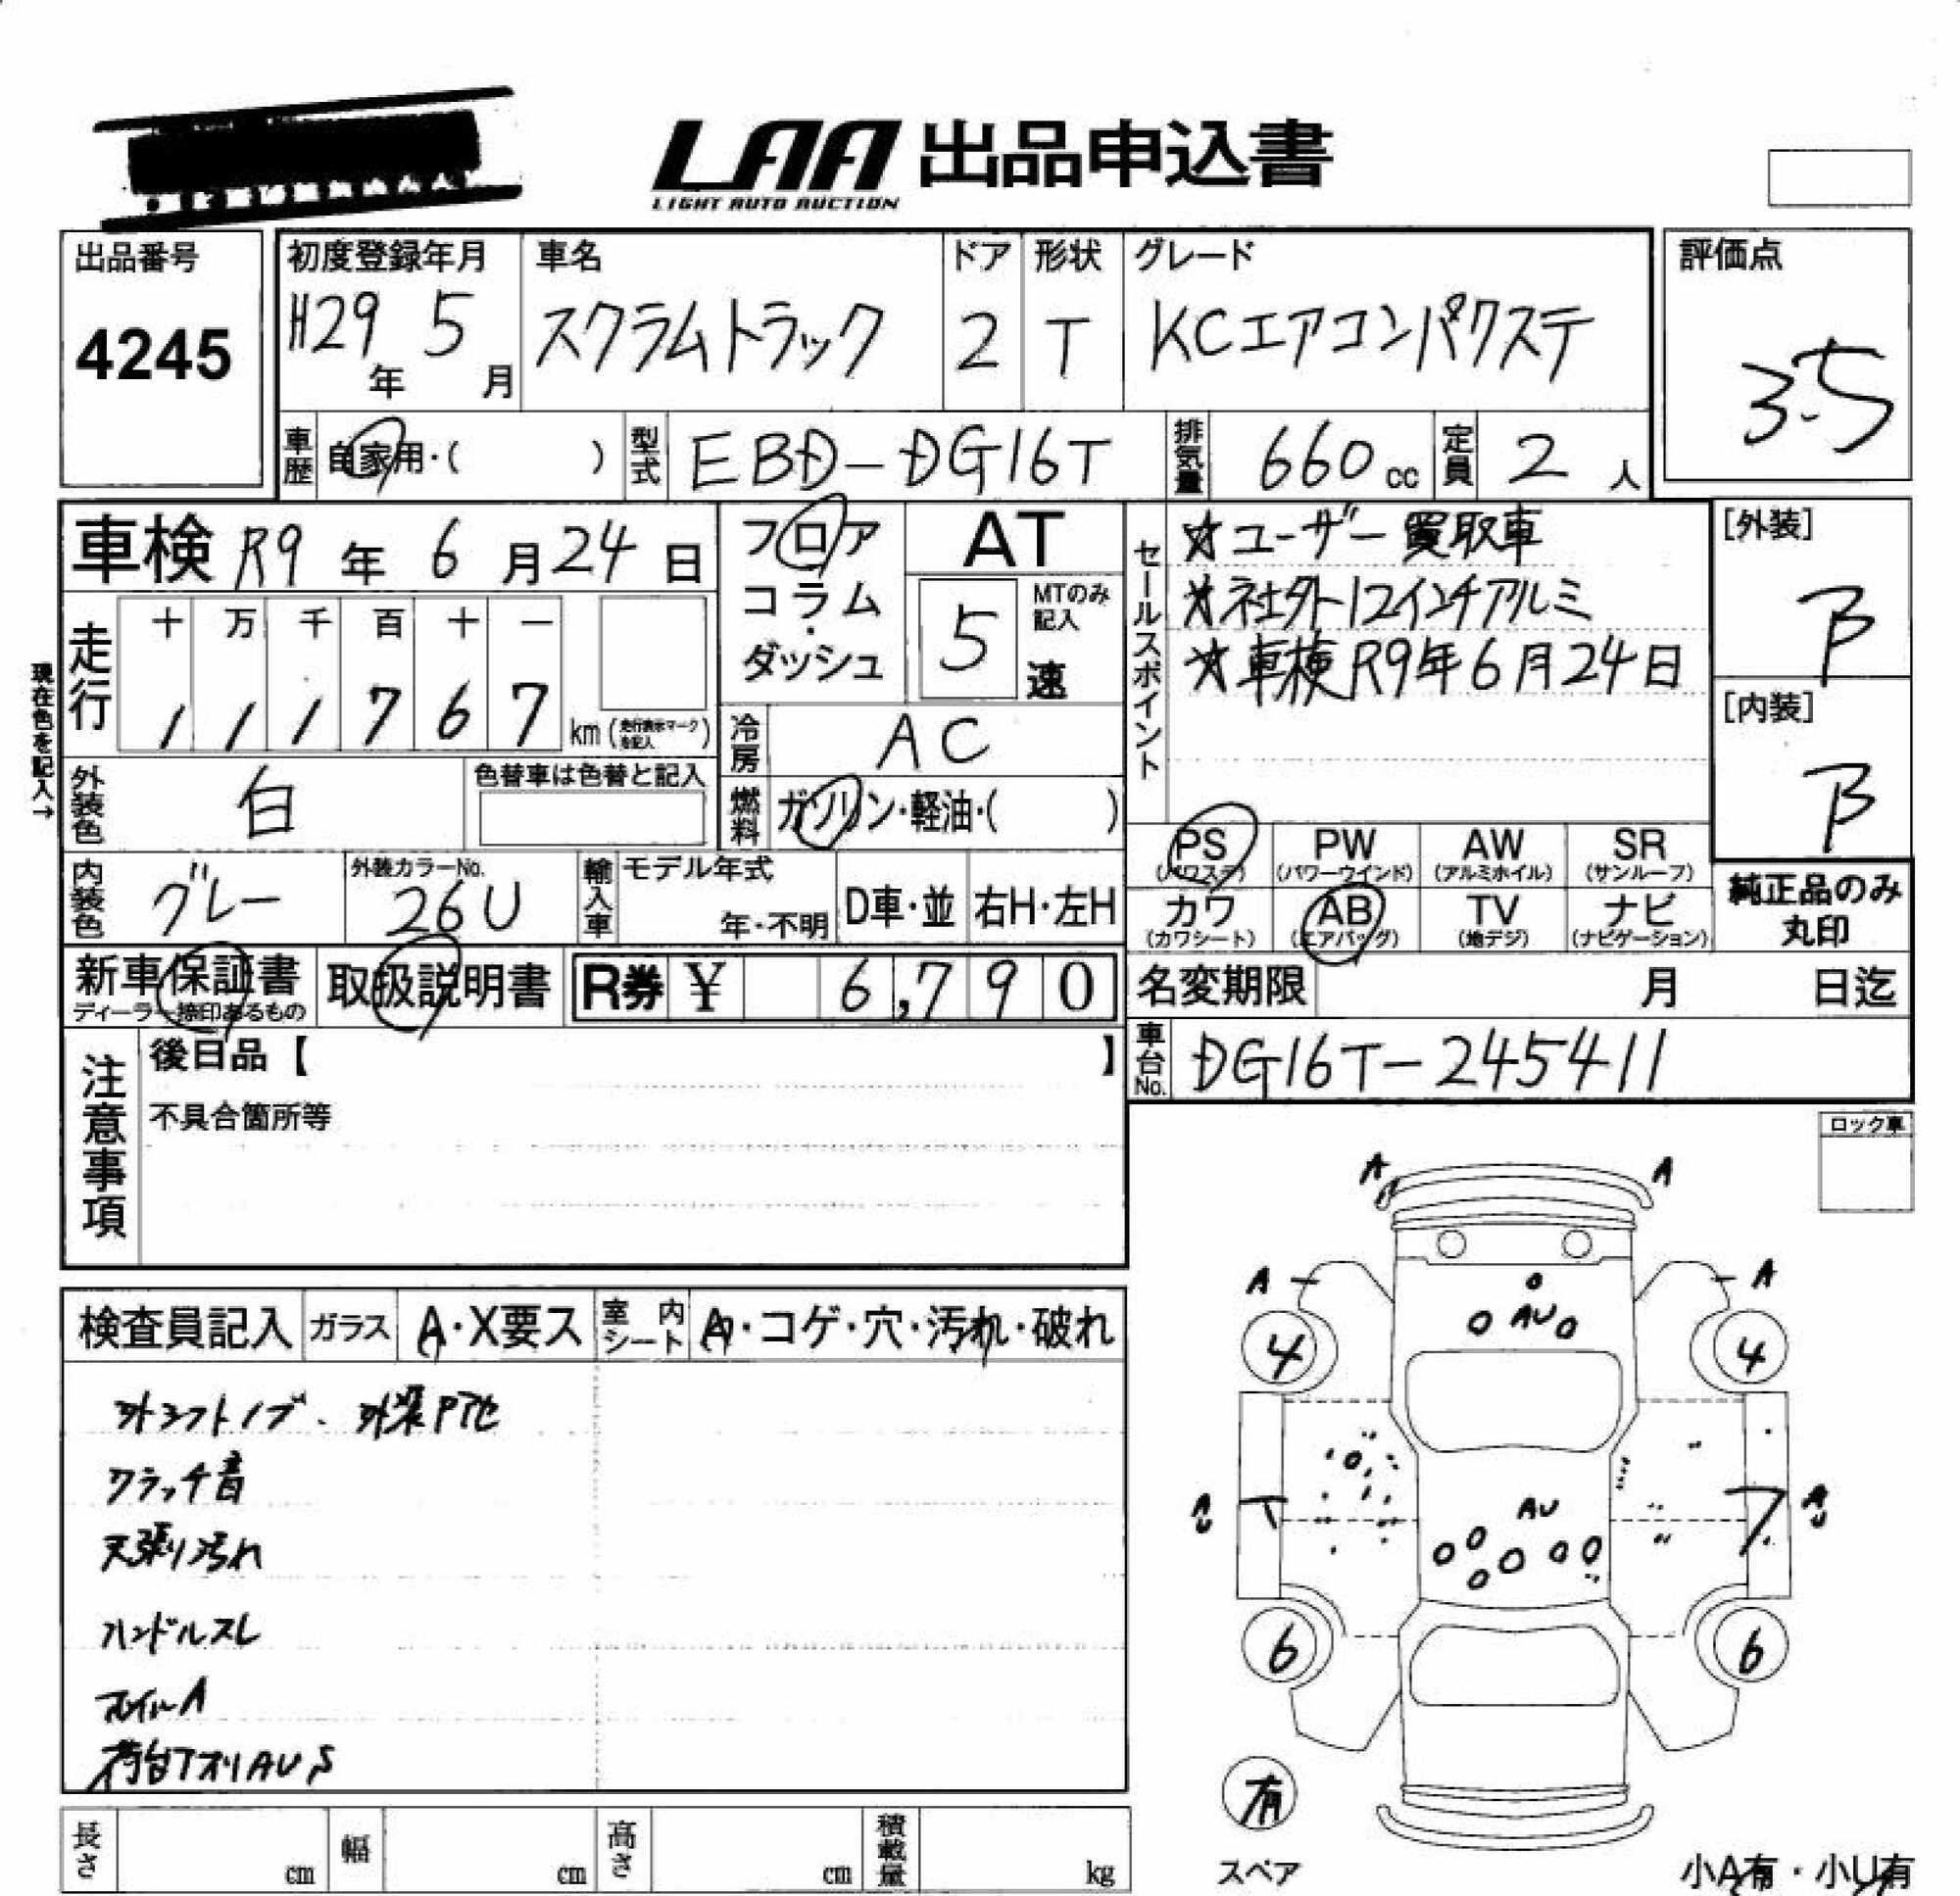 LAA 出品申込書
LIGHT AUTO AUCTION
出品番号
4245
初度登録年月
H29年 5月
車名
スクラムトラック
ドア
2
形状
T
グレード
KCエアコンパワステ
評価点
3.5
車歴
自家用・( )
型式
EBD-DG16T
排気量
660cc
定員
2人
車検 R9年 6月24日
走行
十 万 千 百 十 一
1 1 1 7 6 7 km (走行表示マークを記入)
現在色を記入→
外装色
白
色替車は色替と記入
内装色
グレー
外装カラーNo.
26U
輸入車
モデル年式
年・不明
D車・並
右H・左H
フロア
コラム
・
ダッシュ
AT
5
MTのみ記入
速
冷房
AC
燃料
ガソリン・軽油・( )
セールスポイント
☆ユーザー買取車
☆社外12インチアルミ
☆車検R9年6月24日
[外装]
B
[内装]
B
PS (パワステ)
PW (パワーウインド)
AW (アルミホイル)
SR (サンルーフ)
カワ (カワシート)
AB (エアバッグ)
TV (地デジ)
ナビ (ナビゲーション)
純正品のみ
丸印
新車保証書
ディーラー捺印あるもの
取扱説明書
R券 ¥ 6,790
名変期限 月 日迄
車台No.
DG16T-245411
注意事項
後日品【 】
不具合箇所等
ロック車
検査員記入
ガラス
A・X要ス
室内シート
A・コゲ・穴・汚れ・破れ
外シフトノブ、外装Pアセ
クラッチ音
天張り汚れ
ハンドルスレ
ホイルA
荷台アオリAUS
A
A
A
A
AU
4
4
AU
AU
AU
6
6
有
スペア
小A有・小U有
長さ cm
幅 cm
高さ cm
積載量 kg